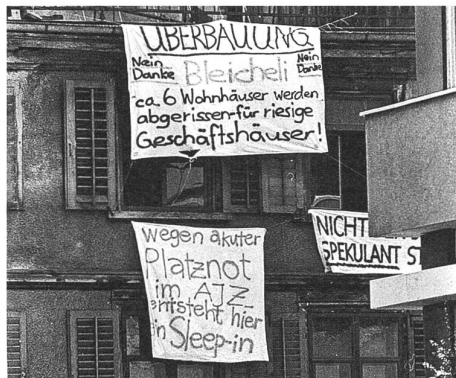 ÜBERBAUUNG
Nein
Danke
Bleicheli
Nein
Danke
ca. 6 Wohnhäuser werden
abgerissen-für riesige
Geschäftshäuser!
wegen akuter
Platznot
im AJZ
entsteht hier
ein Sleep-in
NICHT
SPEKULANT ST